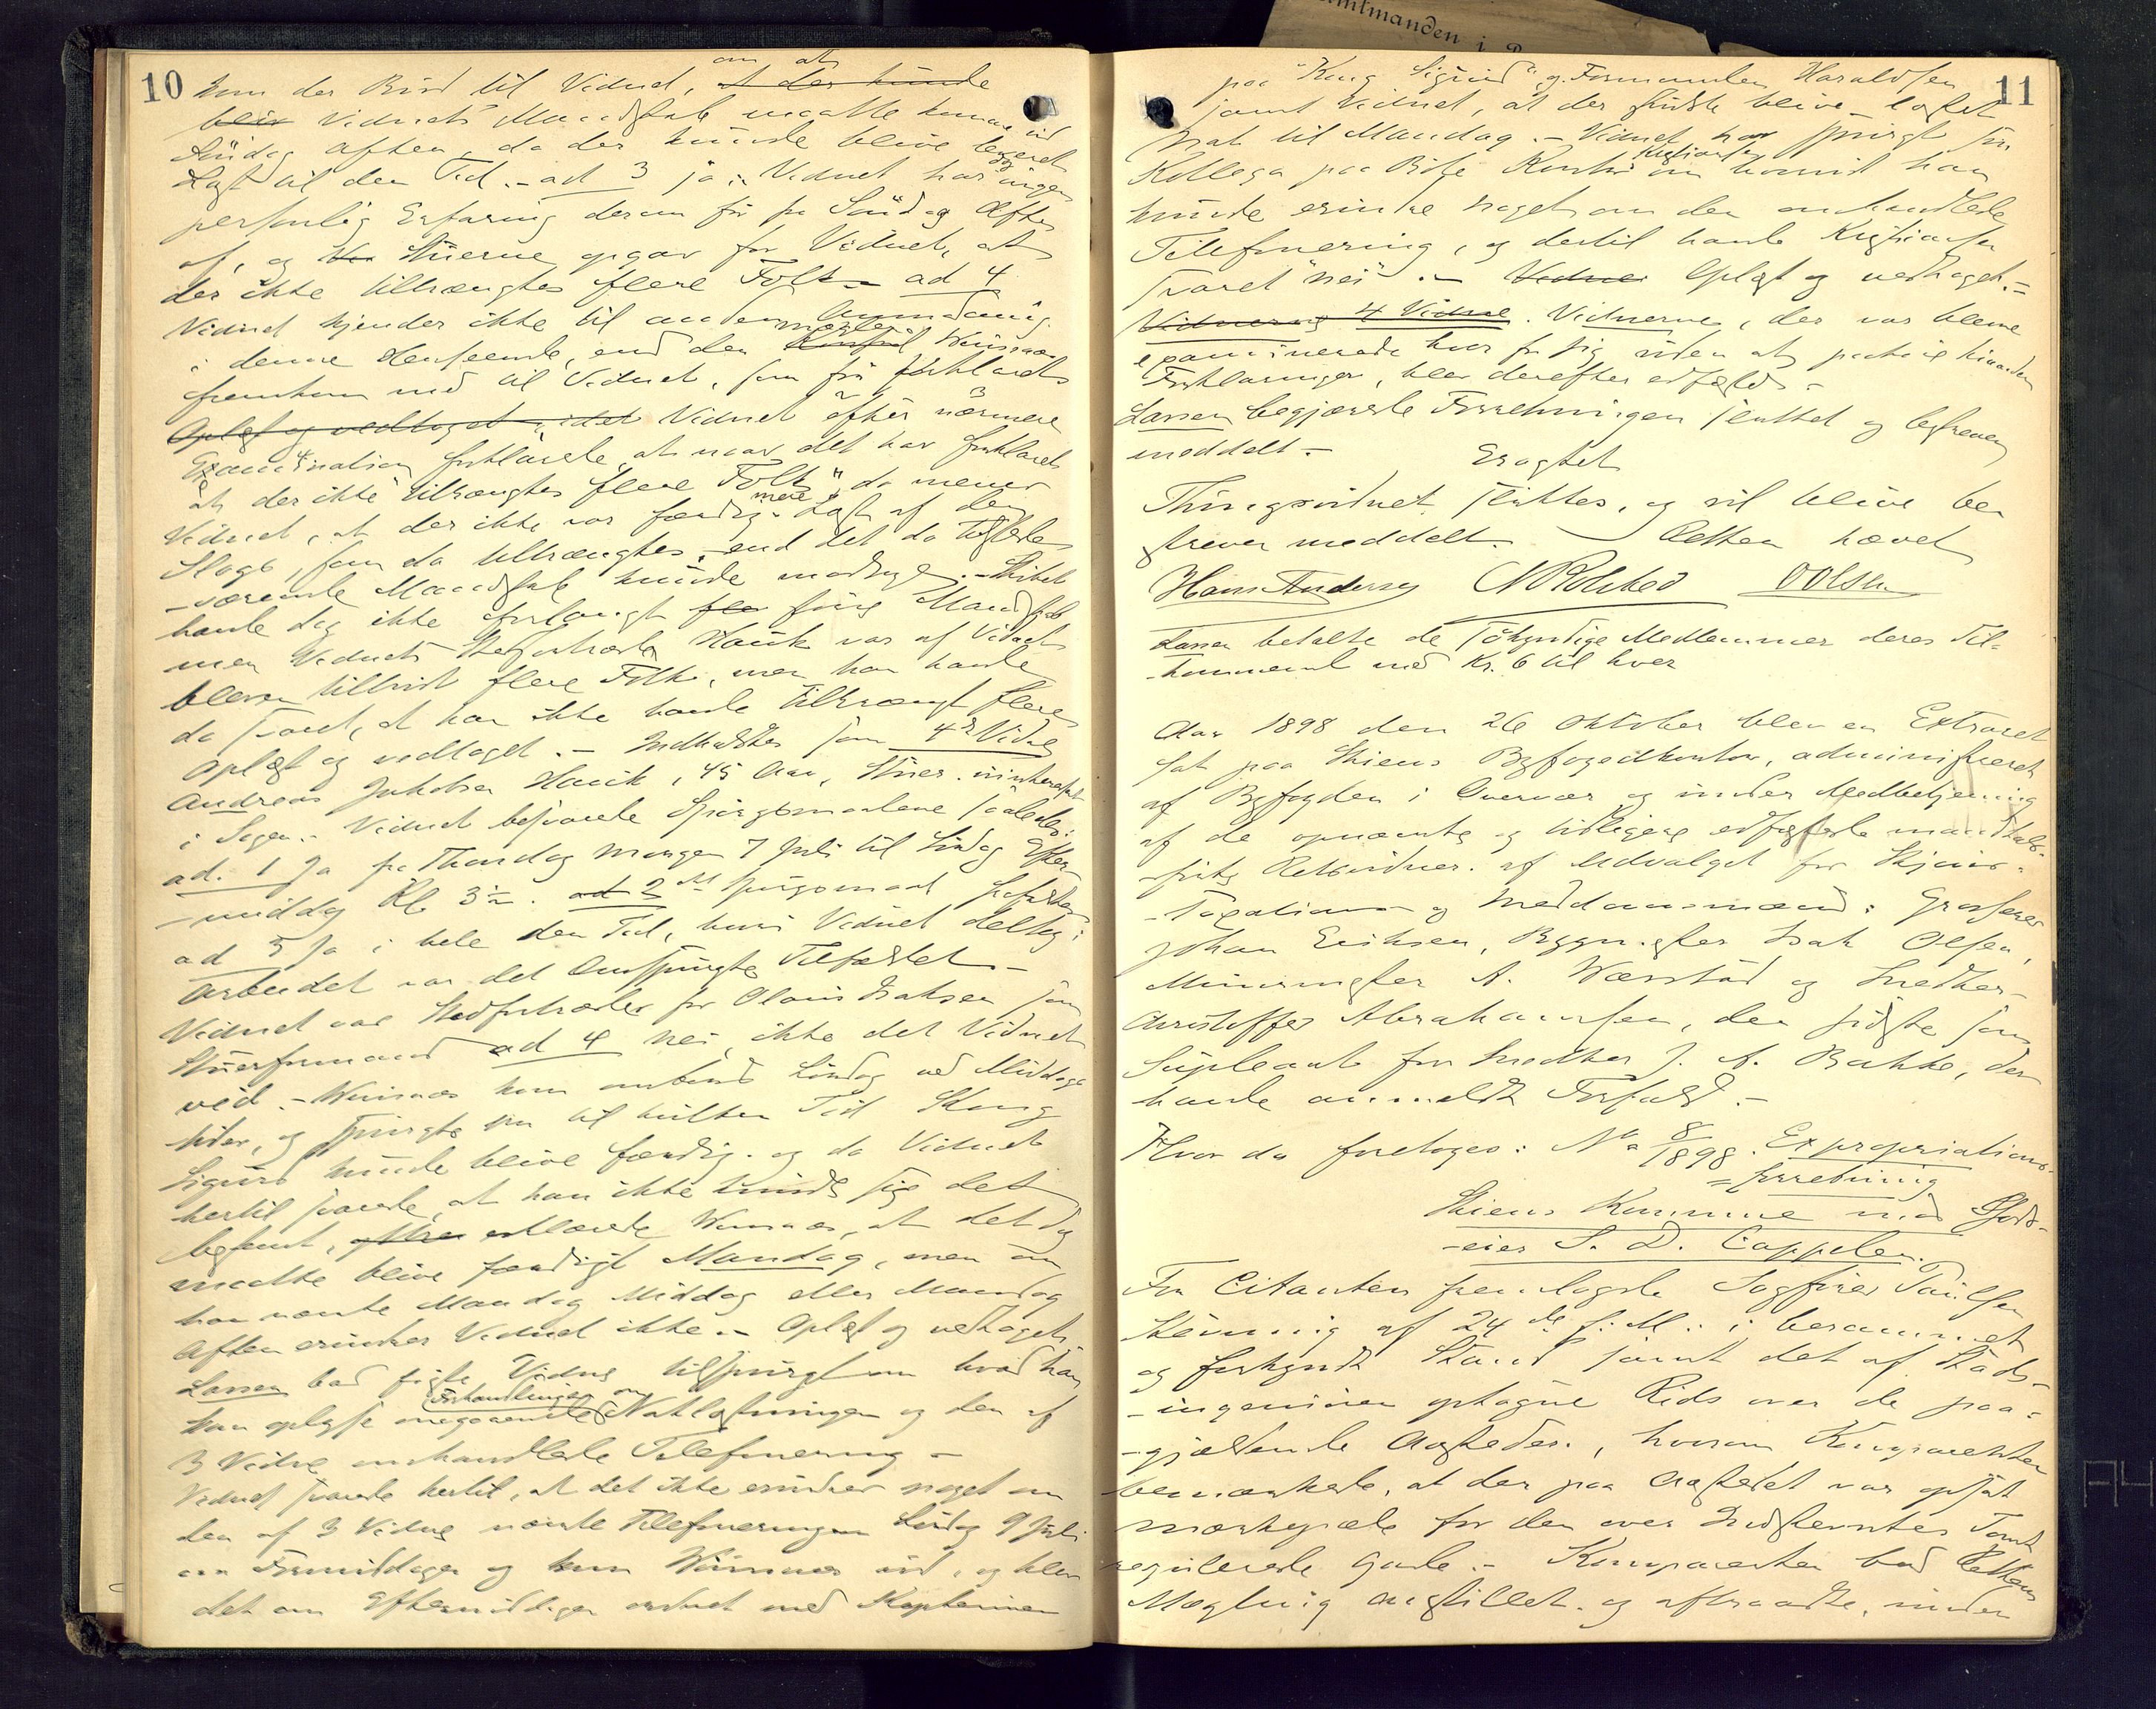 10
kom der Bud til Vidnet, om at
Vidnets Mandskab maatte komme ud
Søndag Aften, da der kunde blive leveret
Last til den Tid. - ad 3 ja; Vidnet har ingen
personlig Erfaring derom før fra Søndag Aften
af, og Stuerne opgav for Vidnet, at
der ikke tiltrængtes flere Folk - ad 4
Vidnet kjender ikke til anden Anmodning
i denne Henseende, end den Winsnæs
fremkom med til Vidnet, som før forklaret
Oplæst og vedtaget, idet Vidnet efter nærmere
Examination forklarede, at naar det har forklaret
"at der ikke tiltrængtes flere Folk", da mener
Vidnet, at der ikke var færdig mere Last af den
Slags, som da tiltrængtes, end det da
-værende Mandskab kunde modtage. - Skibet
havde dog ikke forlangt Mandskab
men Vidnets Stedfortræder Hauk var af Vidnet
bleven tilbudt flere Folk, men han havde
da svaret, at han ikke havde tiltrængt flere
Oplæst og vedtaget. - Indkaldtes som 4de Vidne
Andreas Jakobsen Hauk, 45 Aar, Stuer.
i Sagen. - Vidnet besvarede Spørgsmaalene saaledes:
ad. 1 Ja fra Thorsdag Morgen 7 Juli til Lørdag Efter-
-middag Kl. 3 . ad 2det Spørgsmaal
ad 3 Ja i hele den Tid, hvori Vidnet deltog i
Arbeidet var det Omspurgte Tilfældet -
Vidnet var Stedfortræder for Olaus Isaksen som
Stuerformand ad 4 Nei, ikke det Vidnet
ved. - Winsnæs kom ombord Lørdag ved Middags
tider, og spurgte om til hvilken Tid Kong
Sigurd kunde blive færdig. og da Vidnet
hertil svarede, at han ikke kunde sige det
bestemt, erklærede Winsnæs, at det da
maatte blive færdigt Mandag, men om
han nævnte Mandag Middag eller Mandag
Aften erindrer Vidnet ikke. - Oplæst og vedtaget
Larsen bad Vidne tilspurgt om hvad han
kan oplyse angaaende Forhandlingen om Natlastningen og den af
3 Vidne omhandlede Telefonering -
Vidnet svarede hertil, at det ikke erindrer noget om
den af 3 Vidne nævnte Telefoneringen Lørdag 9 Juli
om Formiddagen og kom Winsnæs ud, og blev
det om Eftermiddagen ordnet med Kapteinen
11
paa "Kong Sigurd" og Formanden Haraldsen
samt Vidnet, at der skulde blive lastet
Nat til Mandag. - Vidnet har spurgt sin
Kollega paa Bøle Kristiansen om hvorvidt han
kunde erindre noget om den omhandlede
Telefonering, og dertil havde Kristiansen
svaret "nei". - Oplæst og vedtaget. -
Vidnerne 4 Vidne. Vidnerne, der var blevne
examinerede hver for sig uden at paahøre hinandens
Forklaringer, blev derefter edfæstede -
Larsen begjærede Forretningen sluttet og beskreven
meddelt. -
Eragtet
Thingsvidnet sluttes, og vil blive be
skreven meddelt. Retten hævet
Hans Andersen N Rolsted O Olsen
Larsen betalte de søkyndige Medlemmer deres Til-
-kommende med Kr. 6 til hver
Aar 1898 den 26 Oktober blev en Extraret
sat paa Skiens Byfogedkontor, administreret
af Byfogden i Overvær og under Medbetjening
af de opnævnte og tidligere edfæstede mandtals-
-førte Retsvidner. af Udvalget for Skjøns-
-Taxations og Meddomsmænd: Grosserer
Johan Eriksen, Bygm.ster Isak Olsen,
Murmester A. Wærstad og Snedker
Christoffer Abrahamsen, den sidste som
Supleant for Snedker J. A. Bakke, der
havde anmeldt Forfald. -
Hvor da foretoges: No 8/1898. Expropriations-
=forretning
Skiens Kommune mod Gods-
-eier S. D. Cappelen.
For Citanten fremlagde Sagfører Paulsen
Stævning af 24de d: M: i berammet
og forkyndt Stand samt det af Stads-
-ingeniøren optagne Rids over de paa-
-gjældende Aasteder., hvorom Komparenten
bemærkede, at der paa Aastedet var opsat
Mærkepæle for den over Indstevntes Tomt
regulerede Gade. - Komparenten bad Rettens
Mægling anstillet. og afstraadte, under